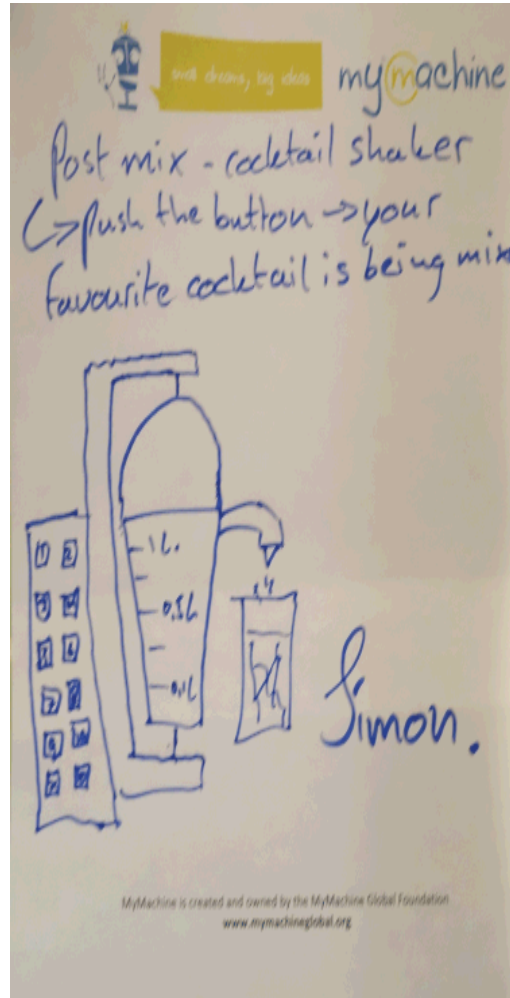 small dreams, big ideas
mymachine
Post mix - cocktail shaker
↳ push the button → your
favourite cocktail is being mix
1L.
0,5L
0,1L
1 2
3
5 6
7 8
9
Simon.
MyMachine is created and owned by the MyMachine Global Foundation
www.mymachineglobal.org